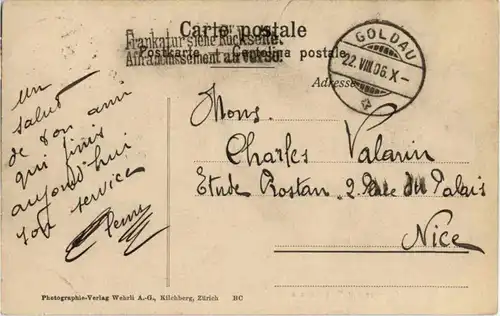 Carte postale
Frankatur siehe Rückseite.
Postkarte Cartolina postale
Affranchissement au verso.
Adresse
GOLDAU
22.VIII.06.X-
un
salut
de son ami
qui finis
aujourd'hui
son service
Mons.
Charles Valarin
Etude Rostan 2 Rue du Palais
Nice
Photographie-Verlag Wehrli A.-G., Kilchberg, Zürich HC